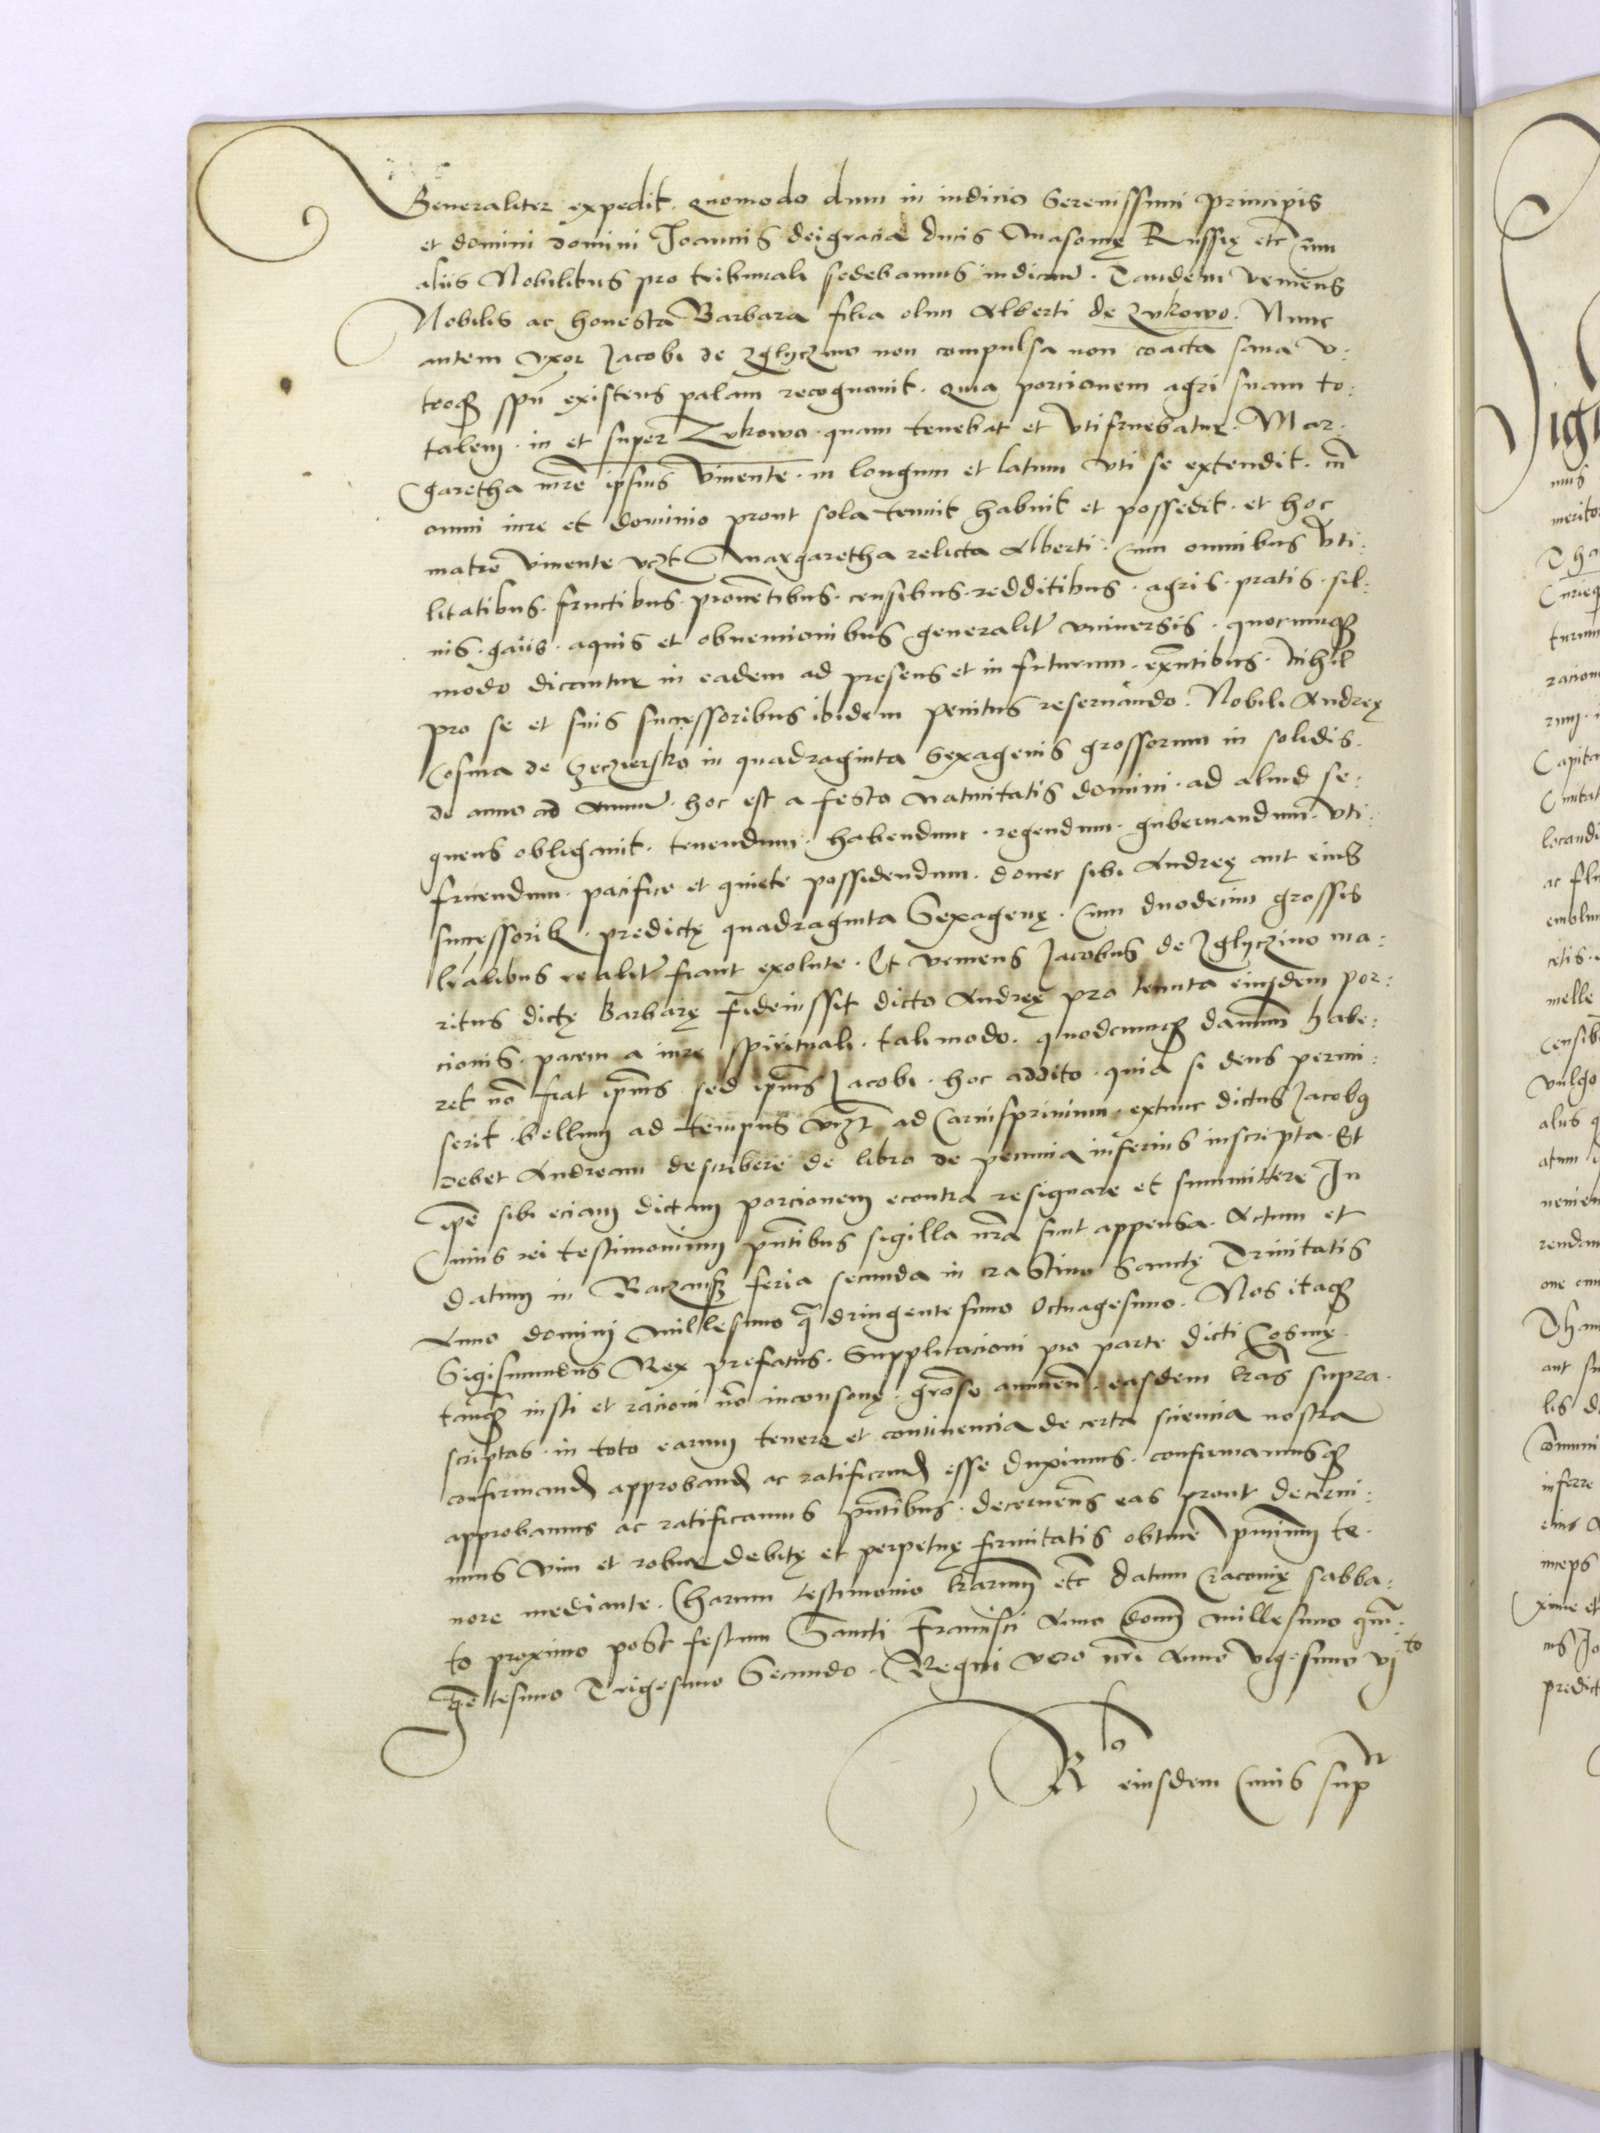 Generaliter expedit. quomodo dum in iudicio Serenissimi principis
et domini domini Joannis deigracia ducis Masovię Russię etc cum
aliis Nobilibus pro tribunali sedebamus iudicium. Tandem veniens
Nobilis ac honesta Barbara filia olim Alberti de Zukowo. Nunc
autem vxor Jacobi de Zglyczino non compulsa non coacta sana v:
troqz spū existens palam recognovit. quia porcionem agri suam to:
talem. in et super Zukowo. quam tenebat et vtifruebatur. Mar:
garetha mr̄e ipsius vivente. in longum et latum vti se extendit. in
omni iure et dominio prout sola tenuit habuit et possedit. et hoc
matre vivente vczt Margaretha relicta Alberti. cum omnibus vti:
litatibus. fructibus. provētibus. censibus. redditibus. agris. pratis. sil:
uis. gaiis. aquis et obuencionibus generalit̄ vniuersis. quocumqz
modo dicantur in eadem ad presens et in futurum. exn̄tibus. Nihil
pro se et suis successoribus ibidem penitus reseruando. Nobili Andreę
Cosma de in quadraginta Sexagenis grossorum in solidis.
de anno ad annum. hoc est a festo natiuitatis domini. ad aliud se:
quens obligauit. tenendum. habendum. regendum. gubernandum. vti:
fruendum. pacifice et quiete possidendum. donec sibi Andreę aut eius
successorib. predictę quadraginta Sexagenę. cum duodecim grossis
lr̄alibus realit̄ fiant exolute. Et veniens Jacobus de Zglyczino ma:
ritus dictę Barbarę fideiussit dicto Andreę pro tenuta eiusdem por:
cionis. pacem a iure spirituali. tali modo. quodcumqz damnum habe:
ret nō fiat ipius sed ipius Jacobi. hoc addito. quia si deus permi:
serit. bellum ad tempus vczt ad Carnisprivium. extunc dictus Jacobus
debet Andream describere de libro de pecunia inferius inscripta. Et
ip̄e sibi eciam dictam porcionem econtra resignare et summittere In
Cuius rei testimonium pn̄tibus sigilla nr̄a sunt appensa. Actum et
datum in feria secunda in crastino Sanctę Trinitatis
Anno domini Millesimo q̄dringentesimo Octuagesimo. Nos itaqz
Sigismundus Rex prefatus. Supplicacioni pro parte dicti Cosmę.
tanqz iusti et racioni nō inconsonę. gr̄ose annuen̄. easdem lr̄as supra:
scriptas. in toto earum tenore et continencia de certa sciencia nostra
confirmand approband ac ratificand esse duximus. confirmamusqz
approbamus ac ratificamus pn̄tibus. decernen̄s eas prout decerni:
mus vim et robur debitę et perpetuę firmitatis obtine pn̄cium te:
nore mediante. Charum testimonio lr̄arum etc datum Cracovię Sabba:
to proximo post festum Sancti Francisci Anno domi Millesimo quī:
gētesimo Trigesimo Secundo. Regni vero nr̄i Anno vigesimo vjto
Rlo eiusdem Cuius supr